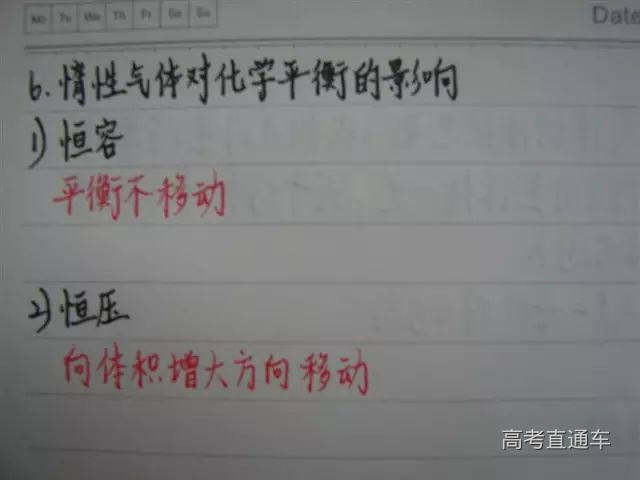 Mo Tu We Th Fr Sa Su
Date
6. 惰性气体对化学平衡的影响
1) 恒容
平衡不移动
2) 恒压
向体积增大方向移动
高考直通车